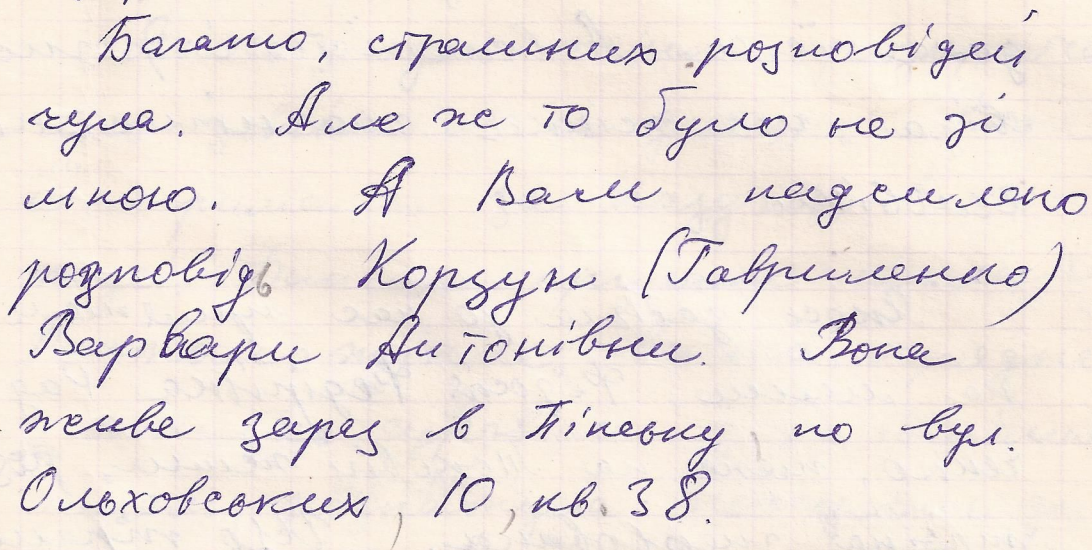 Багато, страшних розповідей
чула. Але ж то було не зі
мною. А Вам надсилаю
розповідь Корзун (Гавриленко)
Варвари Антонівни. Вона
живе зараз в Пінську по вул.
Ольховських, 10, кв. 38.